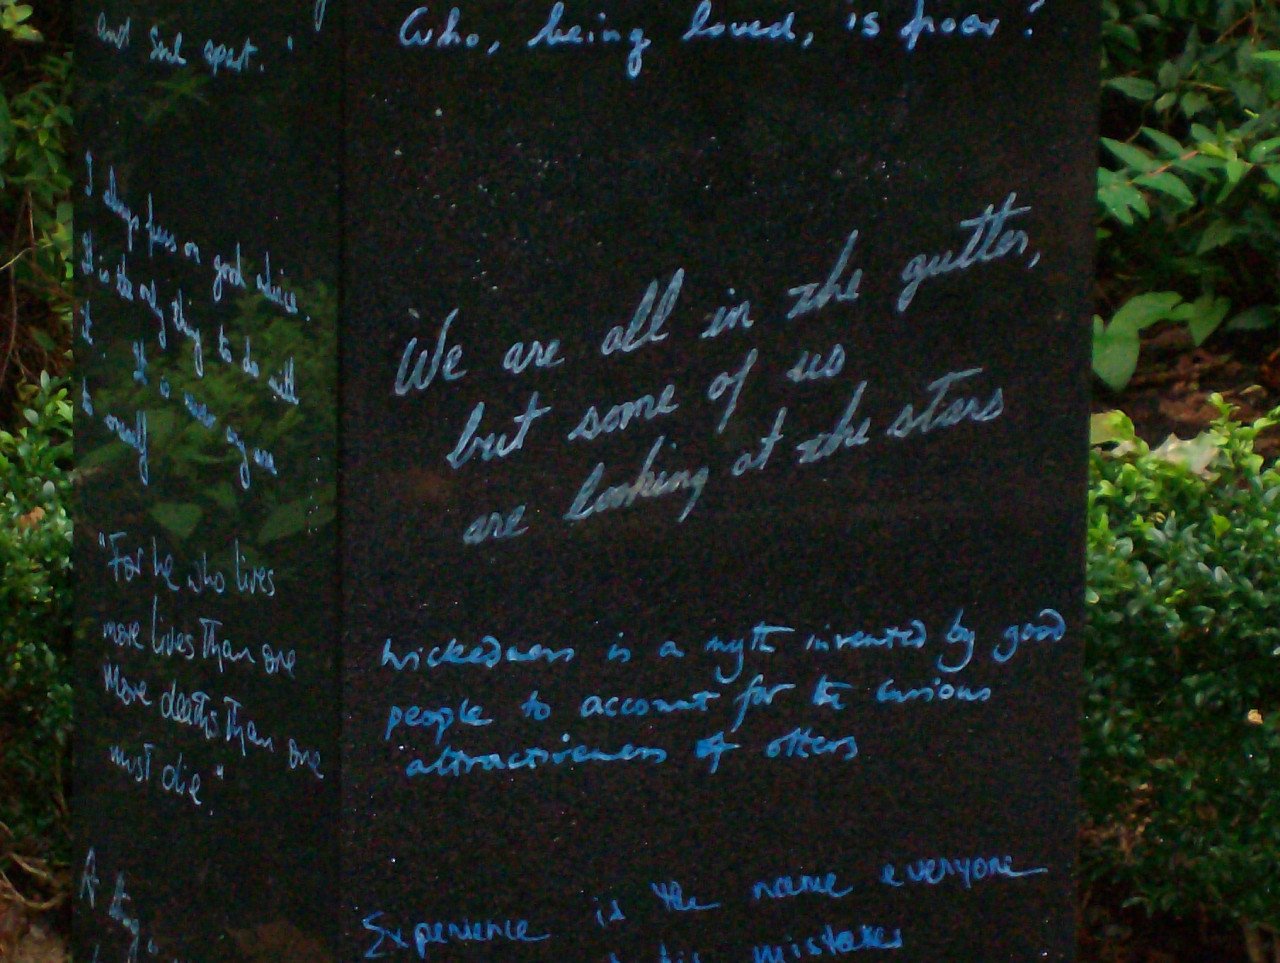 and soul apart.
I always pass on good advice.
It is the only thing to do with
it. It is never any use
to oneself
"For he who lives
more lives Than one
More deaths Than one
must die."
A thing
Who, being loved, is poor?
We are all in the gutter,
but some of us
are looking at the stars
wickedness is a myth invented by good
people to account for the curious
attractiveness of others
Experience is the name everyone
his mistakes